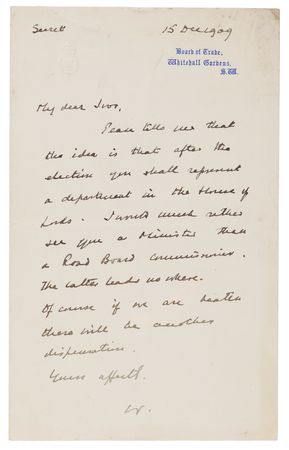 Secret
15 Dec 1909
Board of Trade,
Whitehall Gardens,
S.W.
My dear Ivor,
Pease tells me that
the idea is that after the
election you shall represent
a department in the House of
Lords. I would much rather
see you a Minister than
a Road Board commissioner.
The latter leads no where.
Of course if we are beaten
there will be another
dispensation.
Yours affectly.
W.